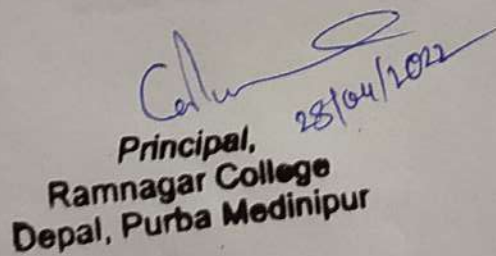 28/04/2022
Principal,
Ramnagar College
Depal, Purba Medinipur